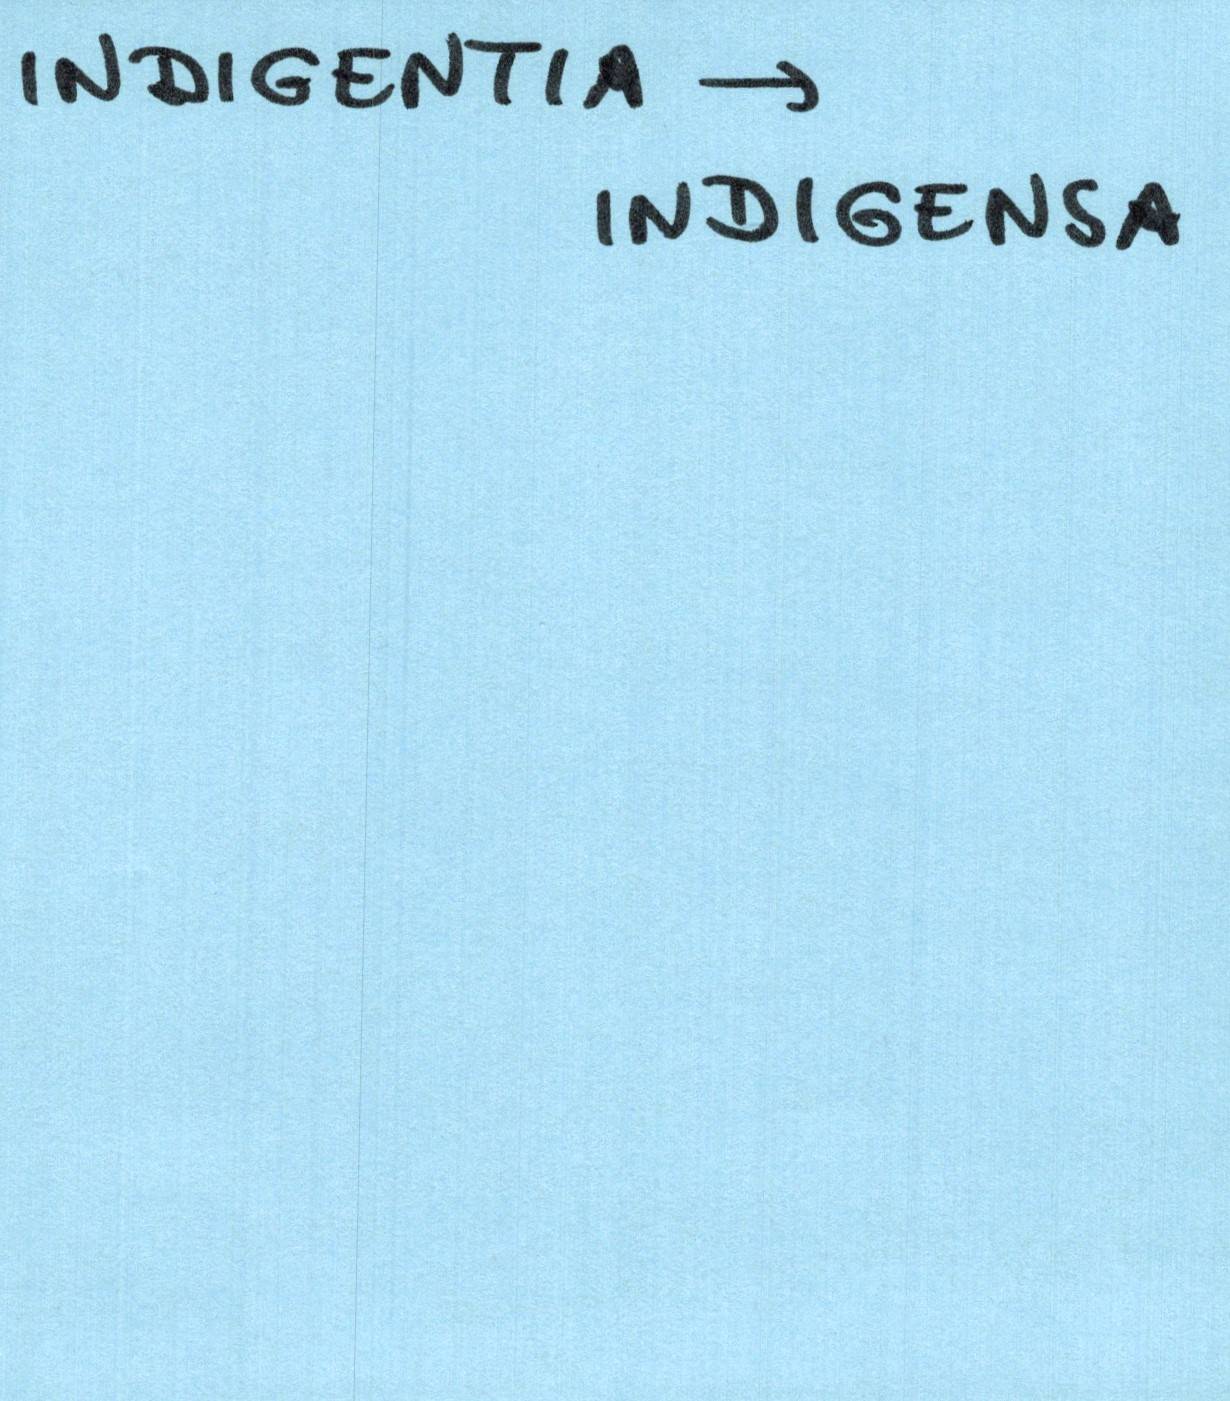 INDIGENTIA →
INDIGENSA